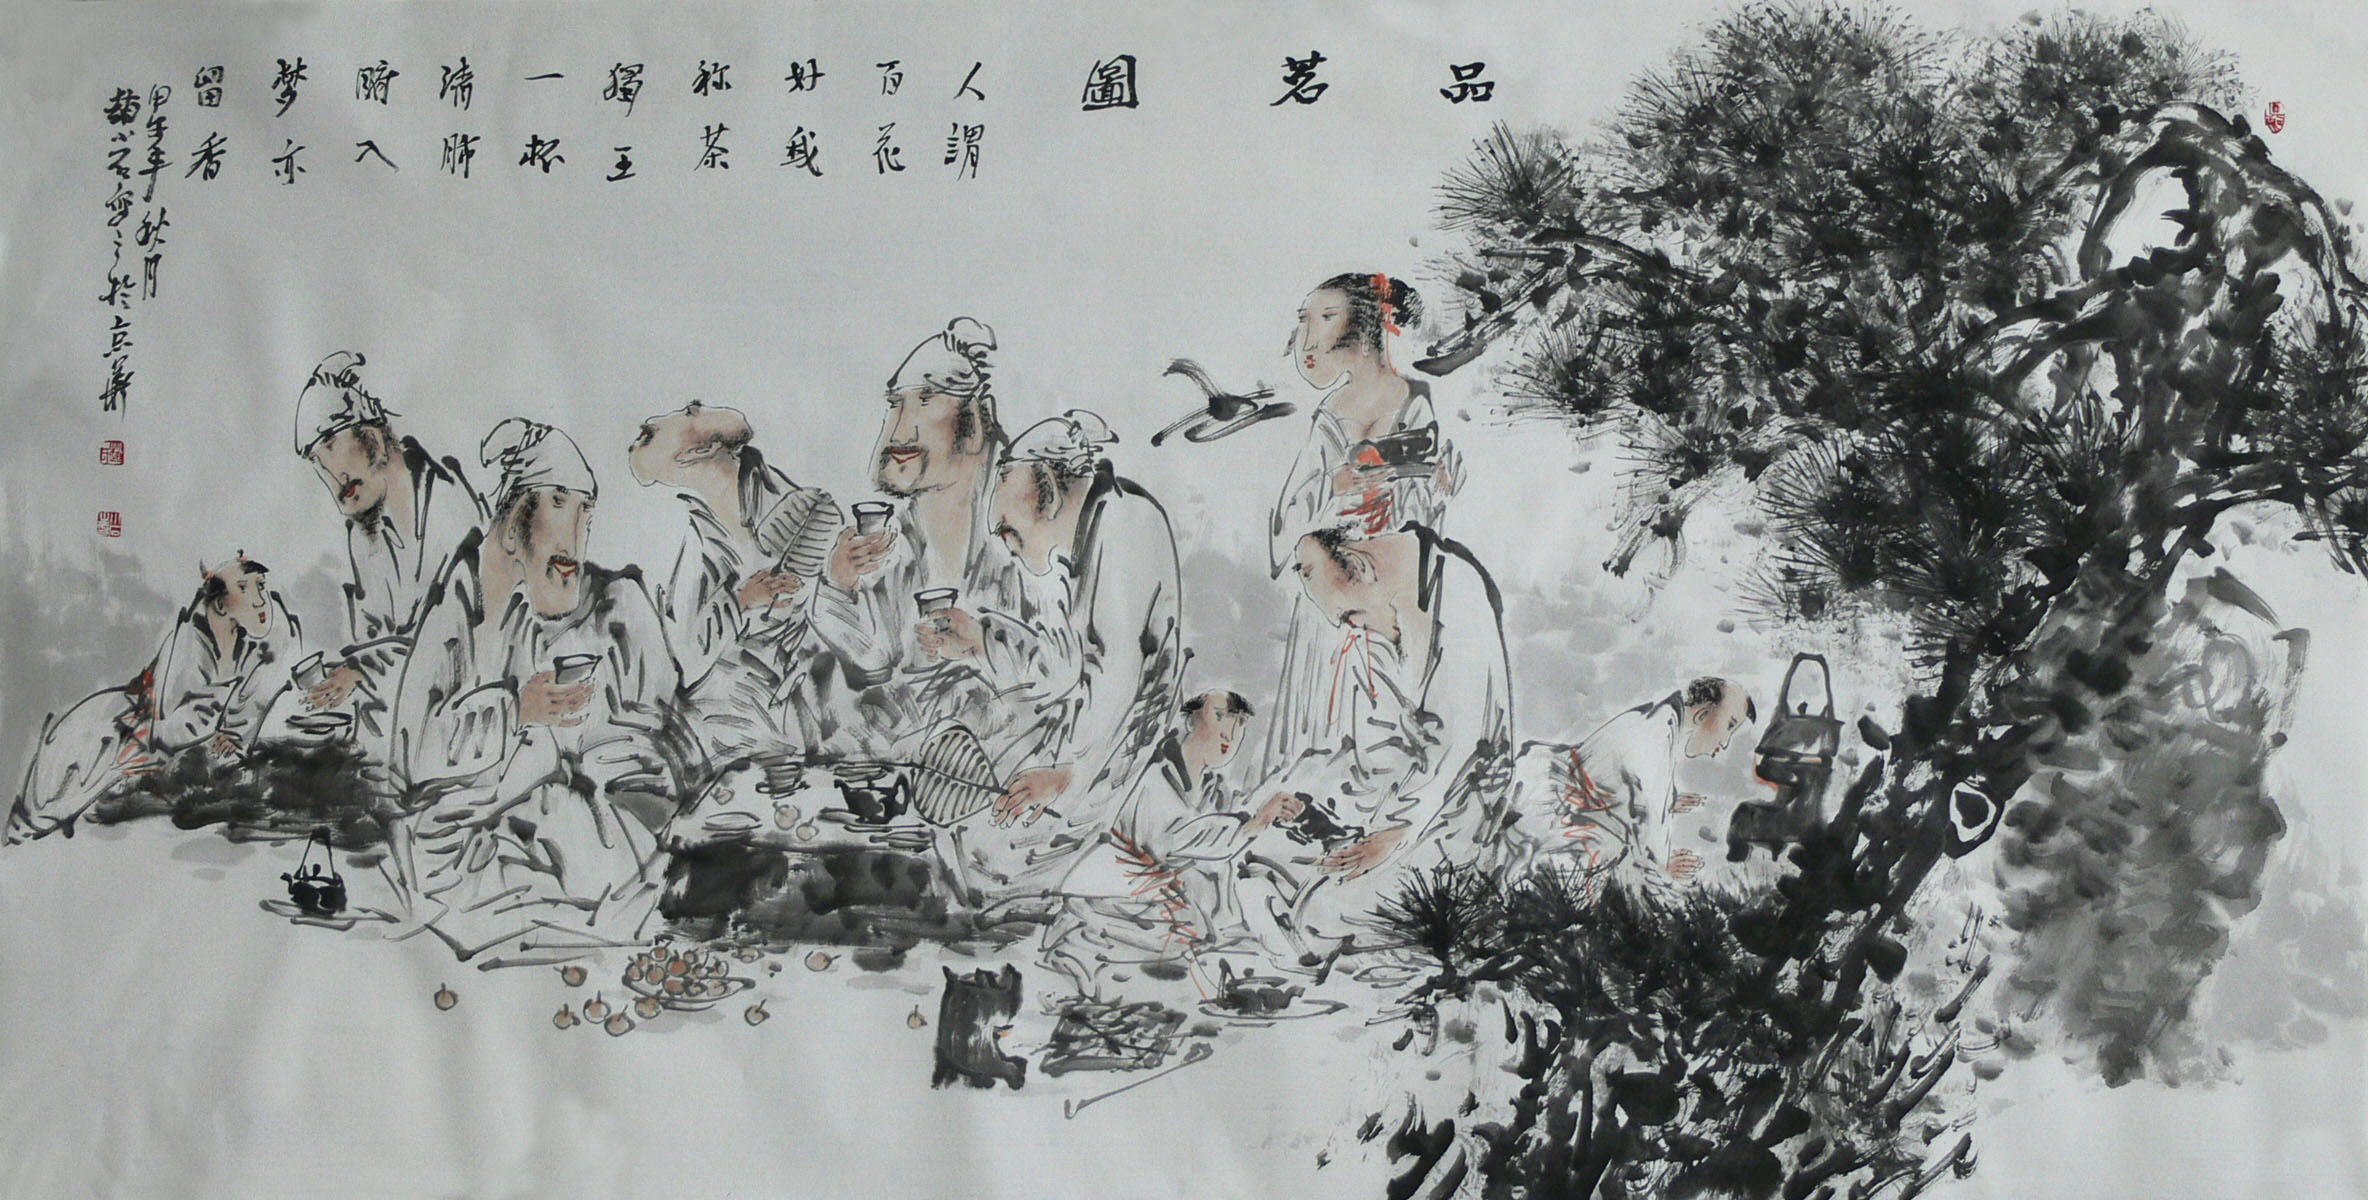 品茗圖
人謂
百花
好我
称茶
獨王
一杯
清肺
腑入
梦亦
留香
甲午年秋月
小石寫之於京華